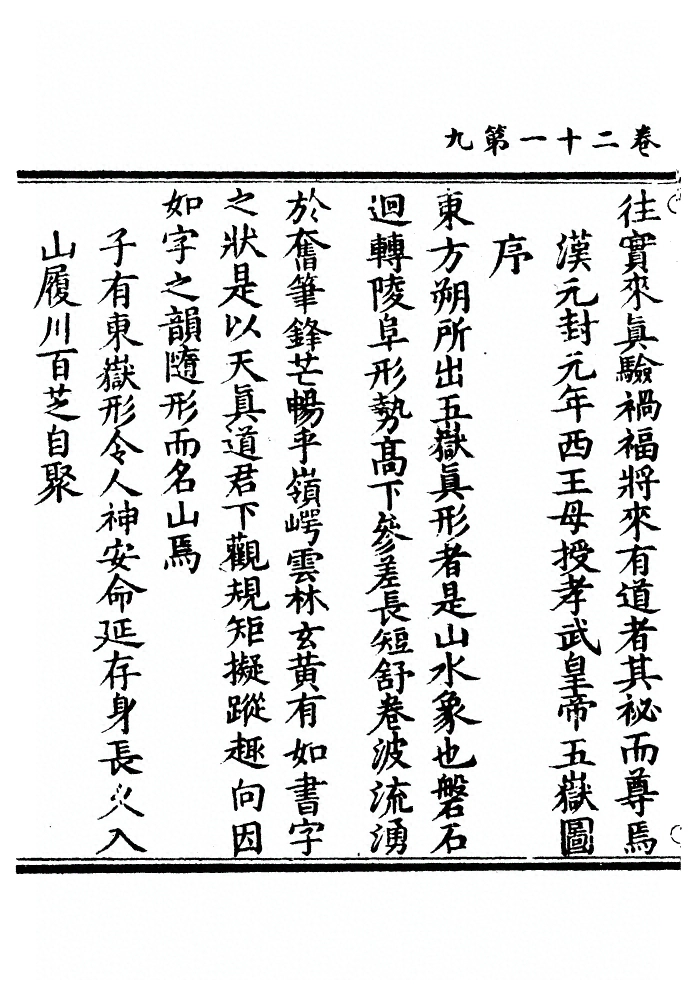 卷二十一第九
往實來眞驗禍福將來有道者其祕而尊焉
漢元封元年西王母授孝武皇帝五嶽圖
序
東方朔所出五嶽眞形者是山水象也磐石
迴轉陵阜形勢髙下參差長短舒卷波流湧
於奮筆鋒芒暢乎嶺崿雲林玄黄有如書字
之狀是以天眞道君下觀規矩擬蹤趣向因
如字之韻隨形而名山焉
子有東嶽形令人神安命延存身長久入
山履川百芝自聚